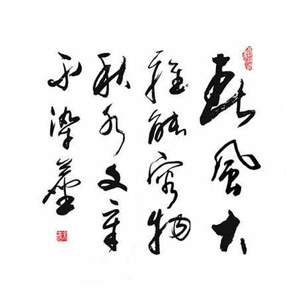 春風大
雅能容物
秋水文章
不染塵